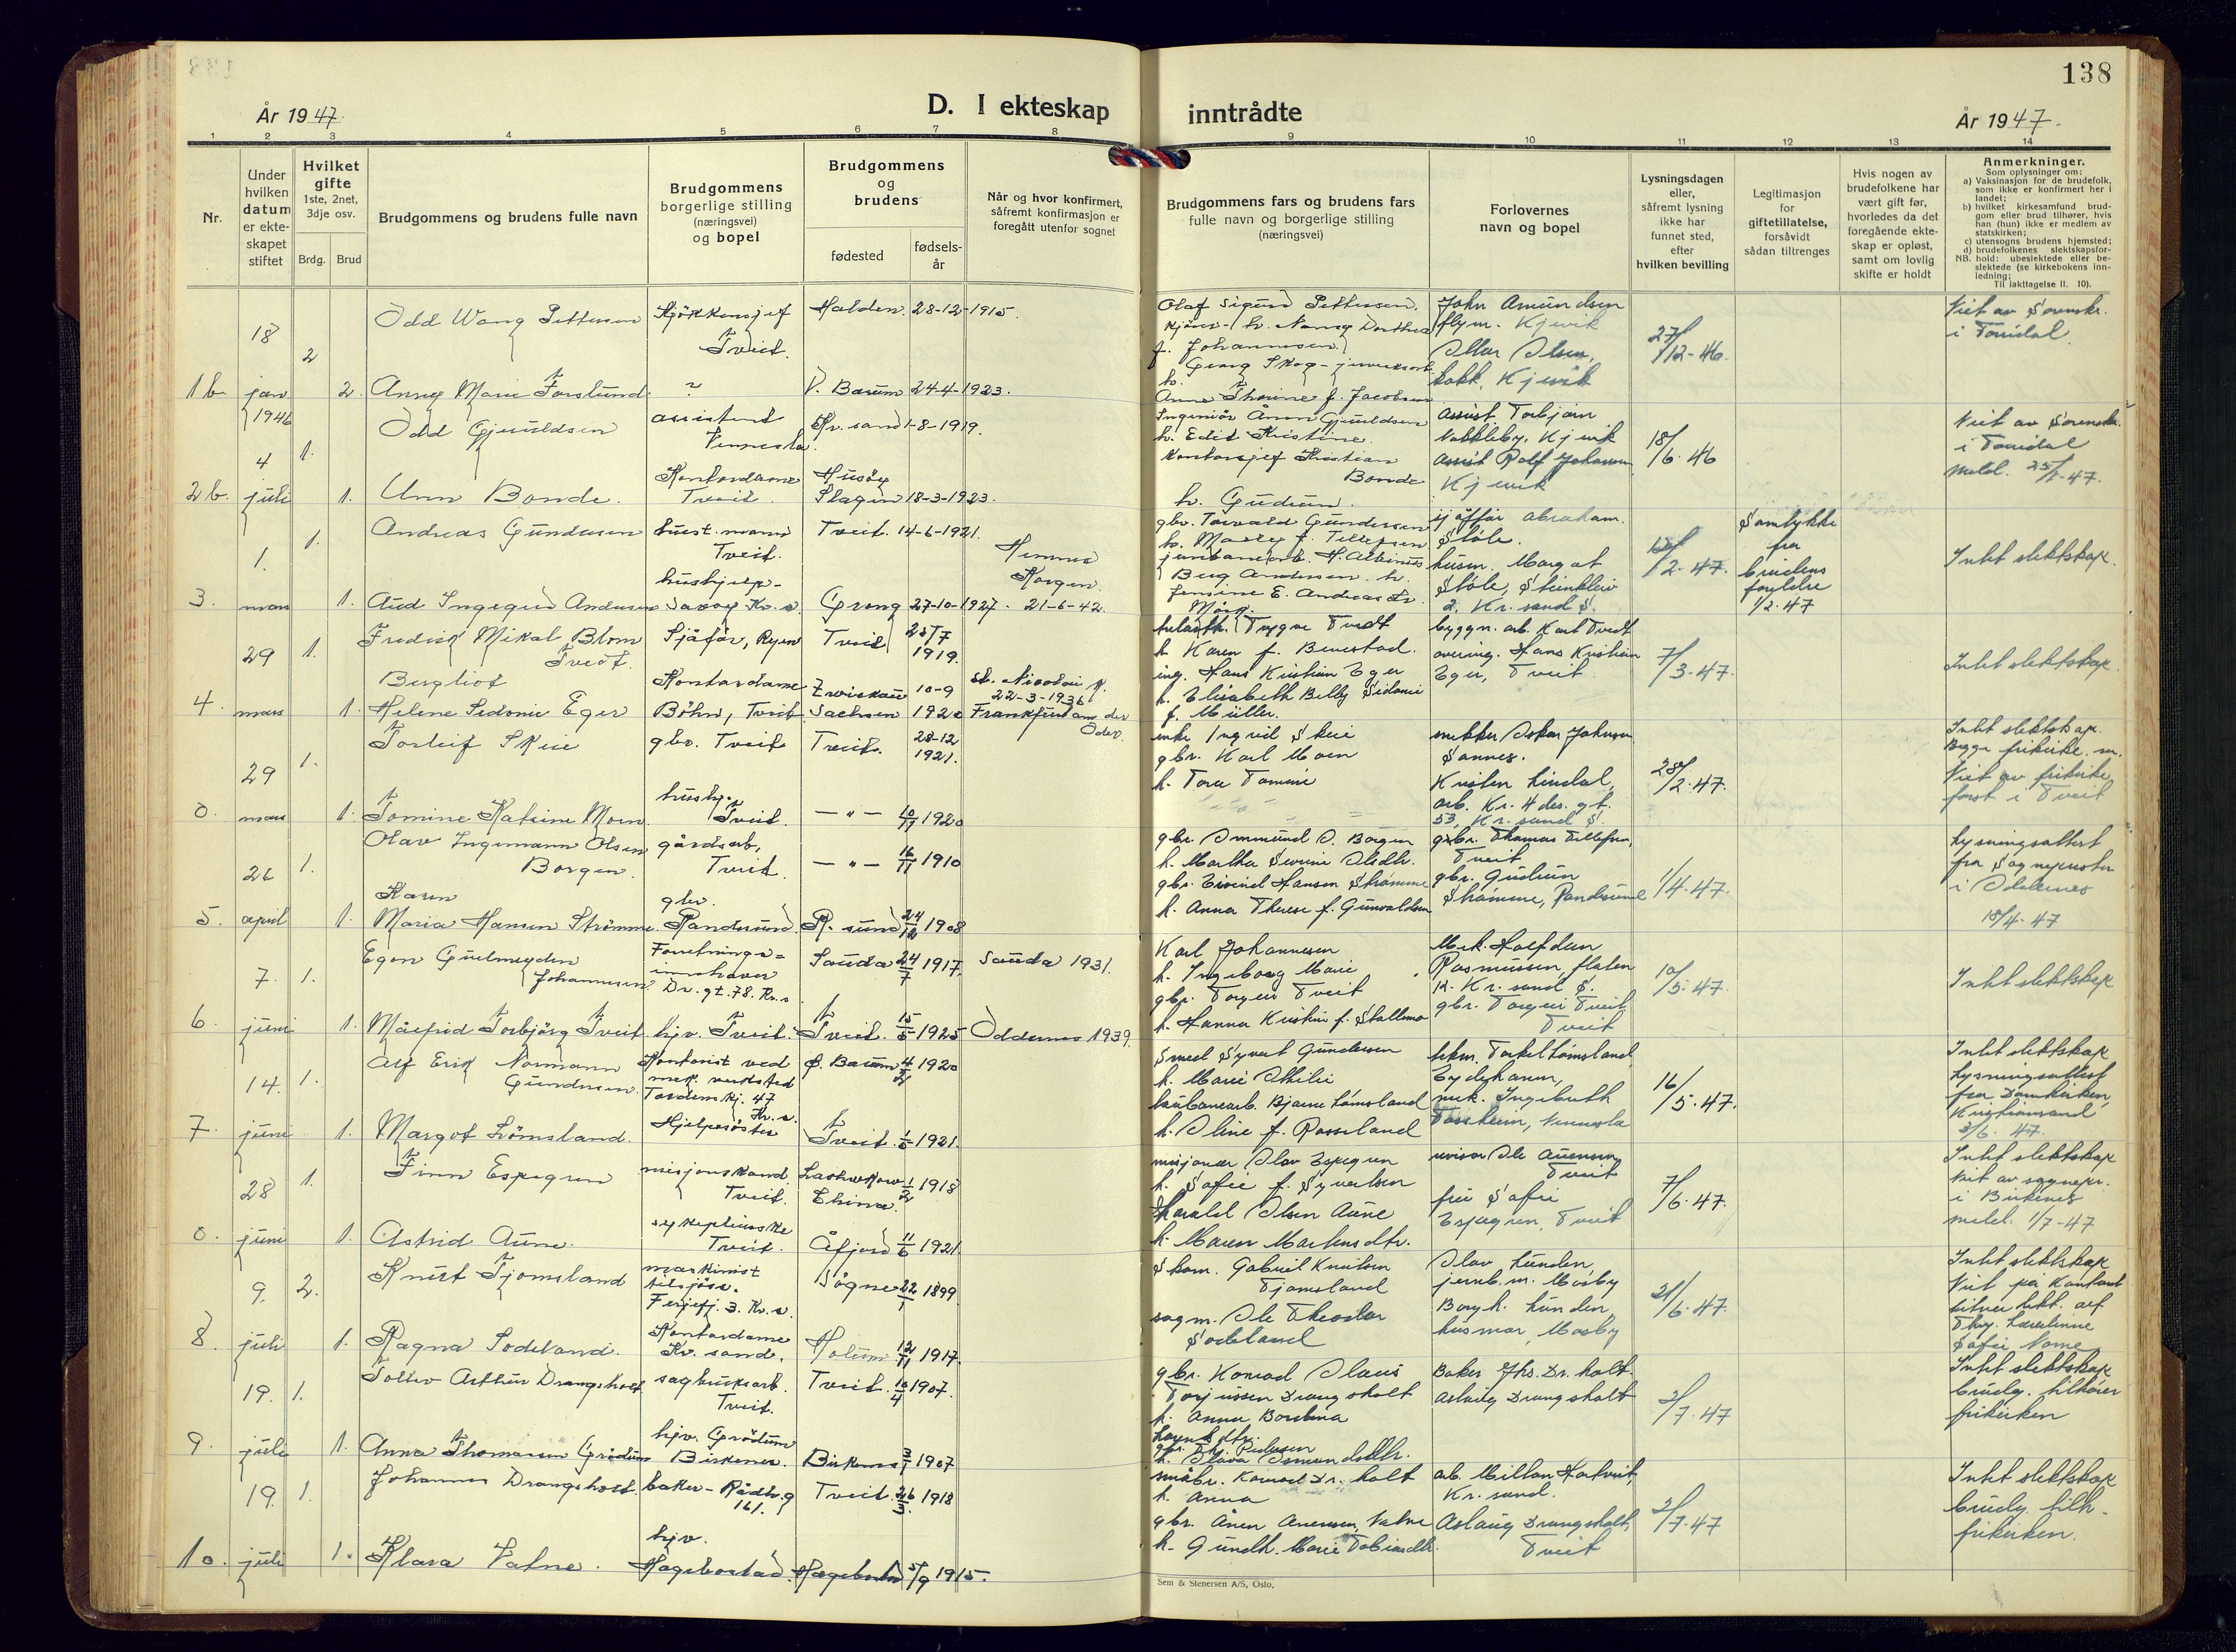 138
År 1947.
D. I ekteskap inntrådte
År 1947.
1 2 3 4 5 6 7 8 9 10 11 12 13 14
Nr.
Under
hvilken
datum
er ekte-
skapet
stiftet
Hvilket
gifte
1ste, 2net,
3dje osv.
Brdg. Brud
Brudgommens og brudens fulle navn
Brudgommens
borgerlige stilling
(næringsvei)
og bopel
Brudgommens
og
brudens
fødested
fødsels-
år
Når og hvor konfirmert,
såfremt konfirmasjon er
foregått utenfor sognet
Brudgommens fars og brudens fars
fulle navn og borgerlige stilling
(næringsvei)
Forlovernes
navn og bopel
Lysningsdagen
eller,
såfremt lysning
ikke har
funnet sted,
efter
hvilken bevilling
Legitimasjon
for
giftetillatelse,
forsåvidt
sådan tiltrenges
Hvis nogen av
brudefolkene har
vært gift før,
hvorledes da det
foregående ekte-
skap er opløst,
samt om lovlig
skifte er holdt
Anmerkninger.
Som oplysninger om:
a) Vaksinasjon for de brudefolk,
som ikke er konfirmert her i
landet;
b) hvilket kirkesamfund brud-
gom eller brud tilhører, hvis
han (hun) ikke er medlem av
statskirken;
c) utensogns brudens hjemsted;
d) brudefolkenes slektskapsfor-
hold: ubeslektede eller be-
slektede (se kirkebokens inn-
ledning;
NB. Til iakttagelse II. 10).
1b. 18 jan 1946 2 2.
Odd Wang Pettersen
Tveit.
Halden 28-12-1915.
Anny Marie Forslund
V. Bærum 24-4-1923.
Olaf Sigurd Pettersen
f. Johannesen
John Amundsen
flym. Kjevik
kokk, Kjevik
27/12-46.
Viet av Sorenskr.
i Torridal
2b. 4 juli 1. 1.
Odd Gjeruldsen
assistent
Vennesla
Kr. sand 1-8-1919.
Unn Bonde.
Kontordame
Tveit.
Husøy
Slagen 18-3-1923.
h. Edit Kristine.
Kontorsjef Kristian
Bonde
h. Gudrun.
assist. Torbjørn
Nakkleby, Kjevik
assist Rolf Johansen
Kjevik
18/6-46
Viet av Sorenskr.
i Torridal
3. 1. mars 1. 1.
Andreas Gundersen
Tveit.
Tveit. 14-6-1921.
Aud Ingegerd Andersen
hushjelp-
Savoy Kr. s.
Grong 27-10-1927.
Hemnes
Korgen.
21-6-42.
gbr. Torvald Gundersen
h. Mally f. Tellefsen
Berg Andersen. h.
sjåffør Abraham
Støle.
husm. Margot
Støle, Steinkleiv
2, Kr. sand S.
Samtykke
fra
brudens
foreldre
1/2-47
Intet slektskap.
4. 29 mars 1. 1.
Fredrik Mikal Blom
Tvedt.
Sjåfør, Ryen
Tveit 25/7
1919.
Bergliot
Helene Sidonie Eger
Kontordame
Böhn, Tveit
Zwickau
Sachsen 10-9
1920
St. Nicolai K.
22-3-1936
Frankfurt am der
Oder.
Trygve Tvedt
h. Karen f. Benestad.
ing. Hans Kristian Eger
h. Elisabeth Belly Sidonie
f. Müller.
byggn. arb. Karl Tvedt
overing. Hans Kristian
Eger, Tveit
7/3-47.
Intet slektskap.
0. 29 mars 1. 1.
Torleif Skeie
gbr. Tveit
Tveit. 28-12
1921.
Tomine Katrine Moen
hushj.
Tveit.
— " — 10/11 1920
enke Ingrid Skeie
gbr. Karl Moen
h. Tora Tomine
snekker Oskar Johnsen
Sannes.
Kristen Lindal,
arb. Kr. 4 des. gt.
53, Kr. sand S.
28/2-47.
Intet slektskap.
Begge frikirke. m.
Viet av frikirke
forst. i Tveit
5. 26 april 1. 1.
Olav Ingemann Olsen
Borgen.
gårdsarb.
Tveit.
— " — 16/11 1910
Karen
Maria Hansen Strømme.
gbr.
Randesund
R. sund 24/12 1908
gbr. Ommund O. Borgen
h. Martha Severine Olsdtr.
gbr. Eivind Hansen Strømme
h. Anna Therese f. Gunvaldsen
gbr. Thomas Tellefsen,
Tveit
gbr. Gudrun
Strømme, Randesund
1/4-47.
Lysningsattest
fra Sognepresten
i Oddernes
18/4-47
6. 7. juni 1. 1.
Egon Gulmeyden
Johannesen
Forretnings-
innehaver
Dr. gt. 78. Kr. s
Sauda 24/7 1917.
Sauda 1931.
Målfrid Torbjørg Tveit
hjv. Tveit.
Tveit. 15/5 1925
Oddernes 1939.
Karl Johannesen
h. Ingeborg Marie
gbr. Torgeir Tveit
h. Hanna Kristine f. Stallemo
Mek. Halfdan
Rasmussen, flaten
12. Kr. sand S.
gbr. Torgeir Tveit,
Tveit
10/5-47.
Intet slektskap
7. 14. juni 1. 1.
Alf Erik Normann
Gundersen.
Kontorist ved
mek. verksted
Tordenskj. 47
Kr. s.
Ø. Bærum 4/2 1920
Margot Lømsland.
Hjelpesøster
Tveit. 1/5 1921.
Smed Syvert Gundersen
h. Marie Otilie
h. Oline f. Rosseland
Eydehavn,
mek. Ingebreth
Tossheim, Vennesla
16/5-47.
Intet slektskap
Lysningsattest
fra Domkirken,
Kristiansand
3/6. 47.
0. 28 juni 1. 1.
Finn Espegren
misjonskand.
Tveit.
China 1/2 1918
Astrid Aune.
sykepleierske
Tveit.
Åfjord 11/6 1921
misjonær Olav Espegren
h. Sofie f. Syvertsen
Harald Olsen Aune
h. Maren Martensdtr.
revisor Ole Auensen
Tveit
fru Sofie
Espegren, Tveit
7/6-47.
Intet slektskap
Viet av sognepr.
i Birkenes
meld. 1/7-47
8. 9. juli 2. 1.
Knut Tjomsland
maskinist
tilsjøs.
Ferjefj. 3. Kr. s.
Søgne 22/1 1899.
Ragna Sodeland.
Kontordame
Kr. sand.
Holum 12/11 1917.
Skom. Gabriel Knutsen
Tjomsland
sogm. Ole Theodor
Sodeland
Olav Lunden,
jernb. m. Mosby
Borgh. Lunden,
husmor, Mosby
21/6-47.
Intet slektskap
9. 19. juli 1. 1.
Tollev Arthur Drangsholt
sagbruksarb.
Tveit.
Tveit. 10/4 1907.
Anna Thomasen Grødum
hjv. Grødum
Birkenes.
Birkenes 3/1 1907
gbr. Konrad Olaus
Torjussen Drangsholt
h. Anna Bordina
gbr. Th. Pedersen
Baker Jhs. Dr. holt.
Aslaug Drangsholt
2/7-47
Intet slektskap
brudg. tilhører
frikirken
10. 19. juli 1. 1.
Johannes Drangsholt.
baker - Rådh. g
161.
Tveit. 26/3 1918
Klara Vatne.
hjv.
Hægebostad.
Hægebostad 5/9 1915.
småbr. Konrad Dr. holt
h. Anna
gbr. Ånen Anensen, Vatne
h. Gundh. Marie Tobiasdtr.
Kr. sand.
Aslaug Drangsholt,
Tveit
2/7-47
Intet slektskap
brudg. tilh.
frikirken.
Sem & Stenersen A/S, Oslo.